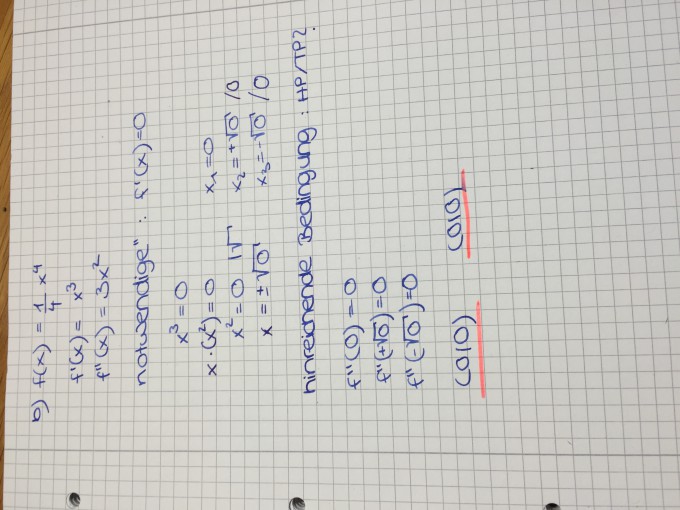 b) f(x) = 1/4 x⁴
f'(x) = x³
f''(x) = 3x²
notwendige": f'(x)=0
x³ = 0
x·(x²) = 0 x₁ = 0
x² = 0 |√ x₂ = +√0 /0
x = ±√0 x₃ = -√0 /0
hinreichende Bedingung: HP/TP?
f''(0) = 0
f''(+√0) = 0
f''(-√0) = 0
(0|0) (0|0)